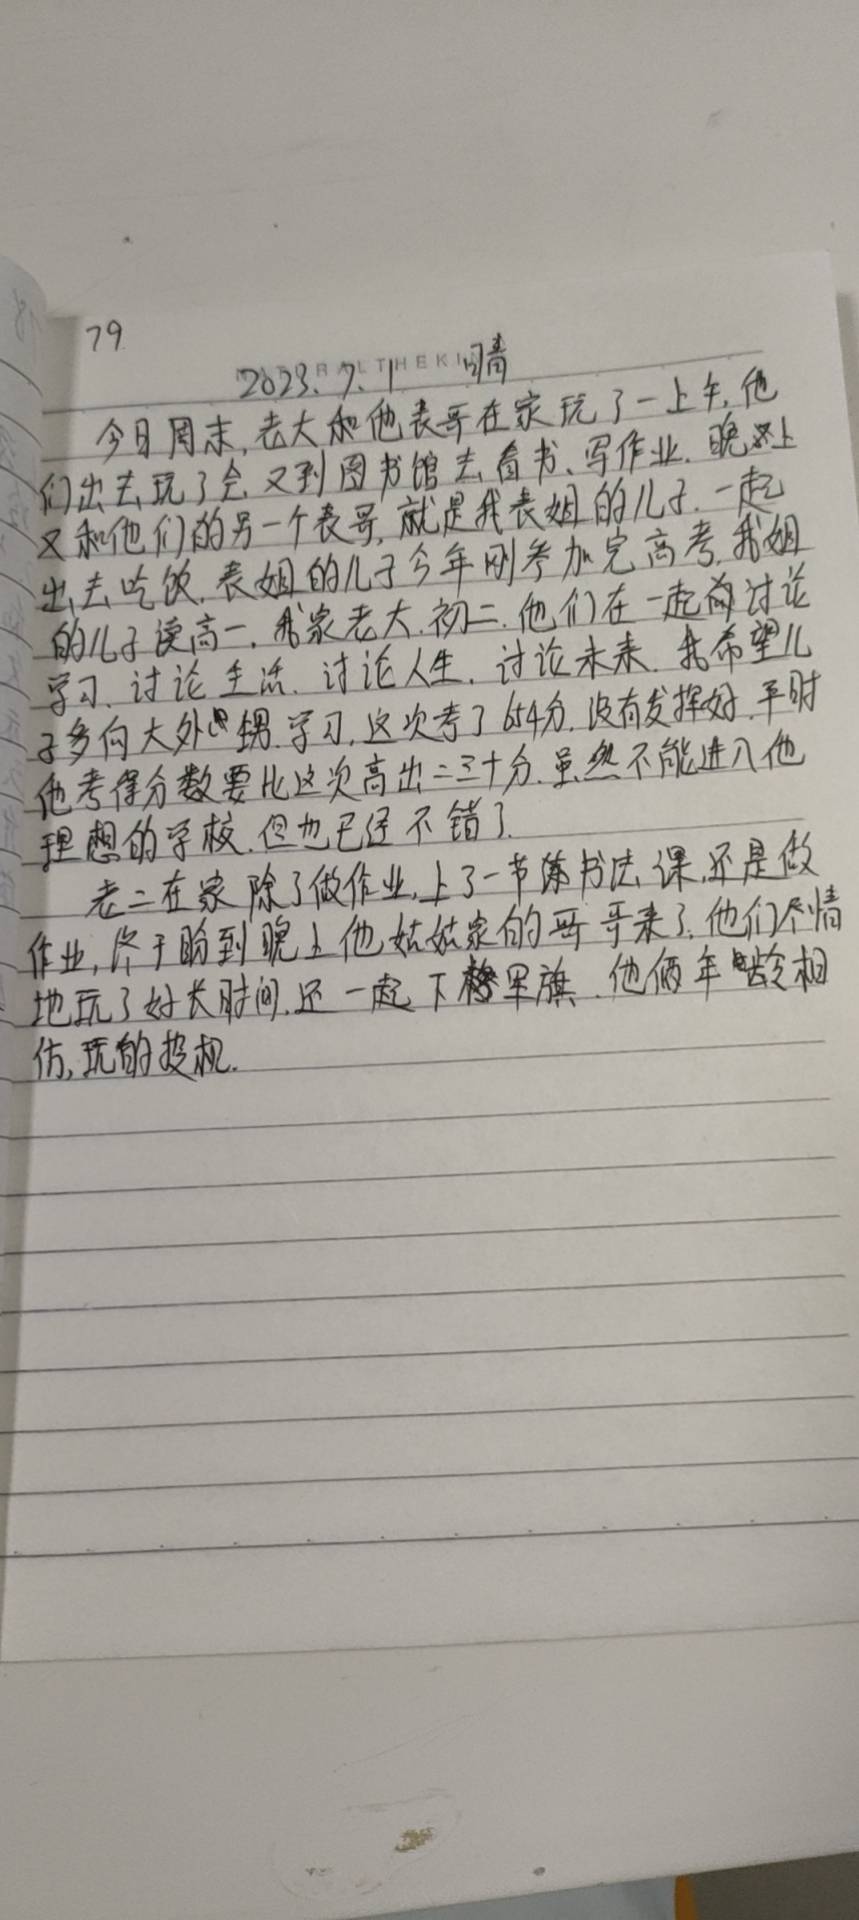 79
2023.7.1 晴
今日周末,老大和他表哥在家玩了一上午,他
们出去玩了会,又到图书馆去看书、写作业.晚上
又和他们的另一个表哥,就是我表姐的儿子.一起
出去吃饭.表姐的儿子今年刚参加完高考,我姐
的儿子读高一,我家老大.初二.他们在一起讨论
学习.讨论生活.讨论人生.讨论未来.我希望儿
子多向大外甥.学习,这次考了654分.没有发挥好.平时
他考得分数要比这次高出二三十分.虽然不能进入他
理想的学校.但也已经不错了.
老二在家除了做作业,上了一节书法课,还是做
作业,终于盼到晚上他姑姑家的哥哥来了.他们尽情
地玩了好长时间.还一起下军旗.他俩年龄相
仿,玩的投机.